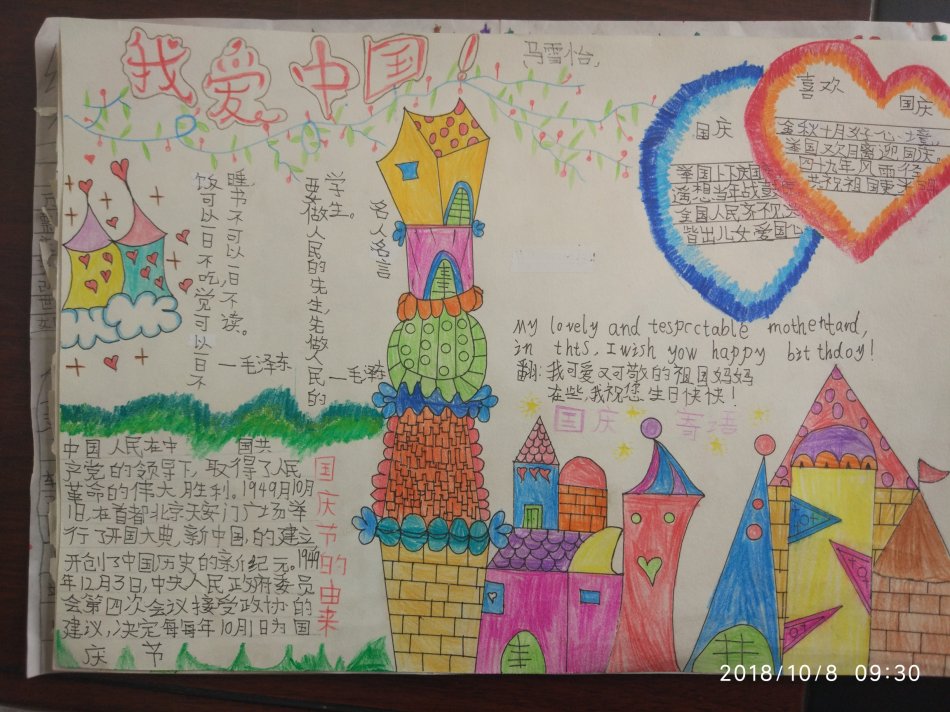 我爱中国！
马雪怡
喜欢
国庆
金秋十月
举国欢日喜迎国庆
四十九年风雨径
共祝祖国更
国庆
举国上下庆国
遥想当年战
全国人民齐
皆出儿女爱国心
名人名言
学生。
要做人民的先生，先做人民的
—毛泽东
睡，
书不可以一日不读。
饭可以一日不吃，觉可以一日不
—毛泽东
My lovely and tespectable motherland,
in this, I wish yow happy bitthday!
翻：我可爱又可敬的祖国妈妈
在些，我祝您生日快快！
国庆寄语
国庆节的由来
中国人民在中 国共
产党的领导下，取得了人民
革命的伟大胜利。1949月10月
1日，在首都北京天安门广场举
行了开国大典，新中国，的建立
开创了中国历史的新纪元。1949
年12月3日，中央人民政府委员
会第四次会议接受政协的
建议，决定每每年10月1日为国
庆节
2018/10/8 09:30